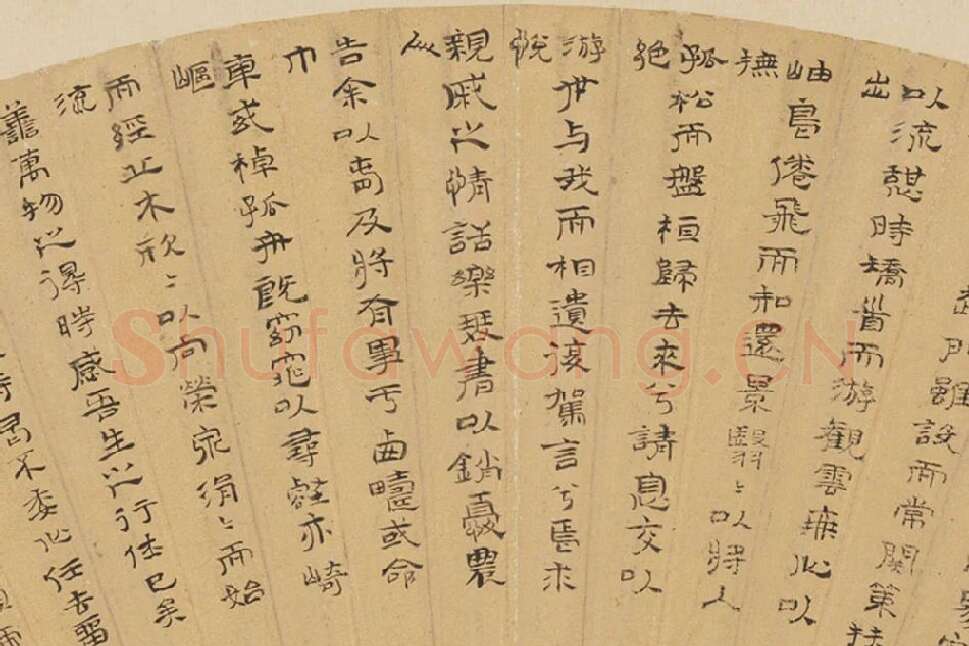 門雖設而常關策扶
以流憩時矯首而游觀雲無心以
出
岫鳥倦飛而知還景翳〻以將入
撫
孤松而盤桓歸去來兮請息交以
絕
游世与我而相遺復駕言兮焉求
悅
親戚之情話樂琴書以銷憂農
人
告余以春及將有事乎西疇或命
巾
車或棹孤舟既窈窕以尋壑亦崎
嶇
而經丘木欣〻以向榮泉涓〻而始
流
善萬物之得時感吾生之行休已矣
時曷不委心任去留
Shufawang.CN